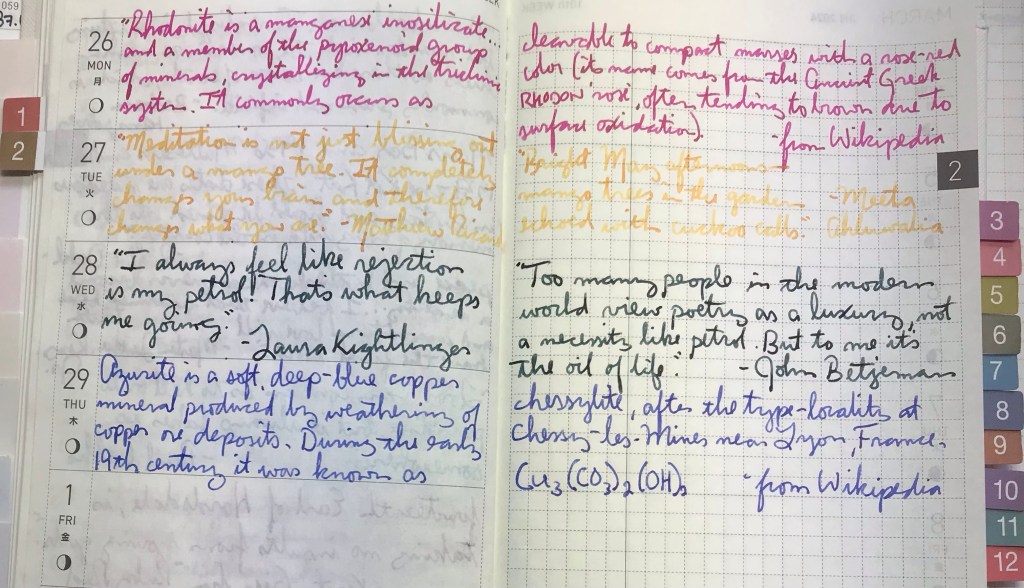 059
37.
26
MON
月
"Rhodonite is a manganese inosilicate...
and a member of the pyroxenoid group
of minerals, crystallizing in the triclinic
system. It commonly occurs as
cleavable to compact masses with a rose-red
color (its name comes from the Ancient Greek
RHODON 'rose', often tending to brown due to
surface oxidation).
-from Wikipedia
27
TUE
火
"Meditation is not just blissing out
under a mango tree. It completely
changes your brain and therefore
changes what you are." -Matthieu Ricard
"Bright May afternoons-
mango trees in the garden
echoed with cuckoo calls." -Meeta
Ahluwalia
28
WED
水
"I always feel like rejection
is my petrol! Thats what keeps
me going."
-Laura Kightlinger
"Too many people in the modern
world view poetry as a luxury, not
a necessity like petrol. But to me it's
the oil of life." -John Betjeman
29
THU
木
Azurite is a soft, deep-blue copper
mineral produced by weathering of
copper ore deposits. During the early
19th century it was known as
chessylite, after the type-locality at
Chessy-les-Mines near Lyon, France.
Cu3(CO3)2(OH)2 -from Wikipedia
1
FRI
金
1
2
2
3
4
5
6
7
8
9
10
11
12